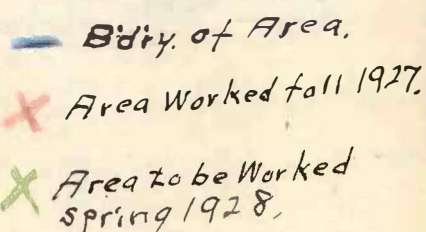 B'dry. of Area.
Area Worked fall 1927.
Area to be Worked
spring 1928.